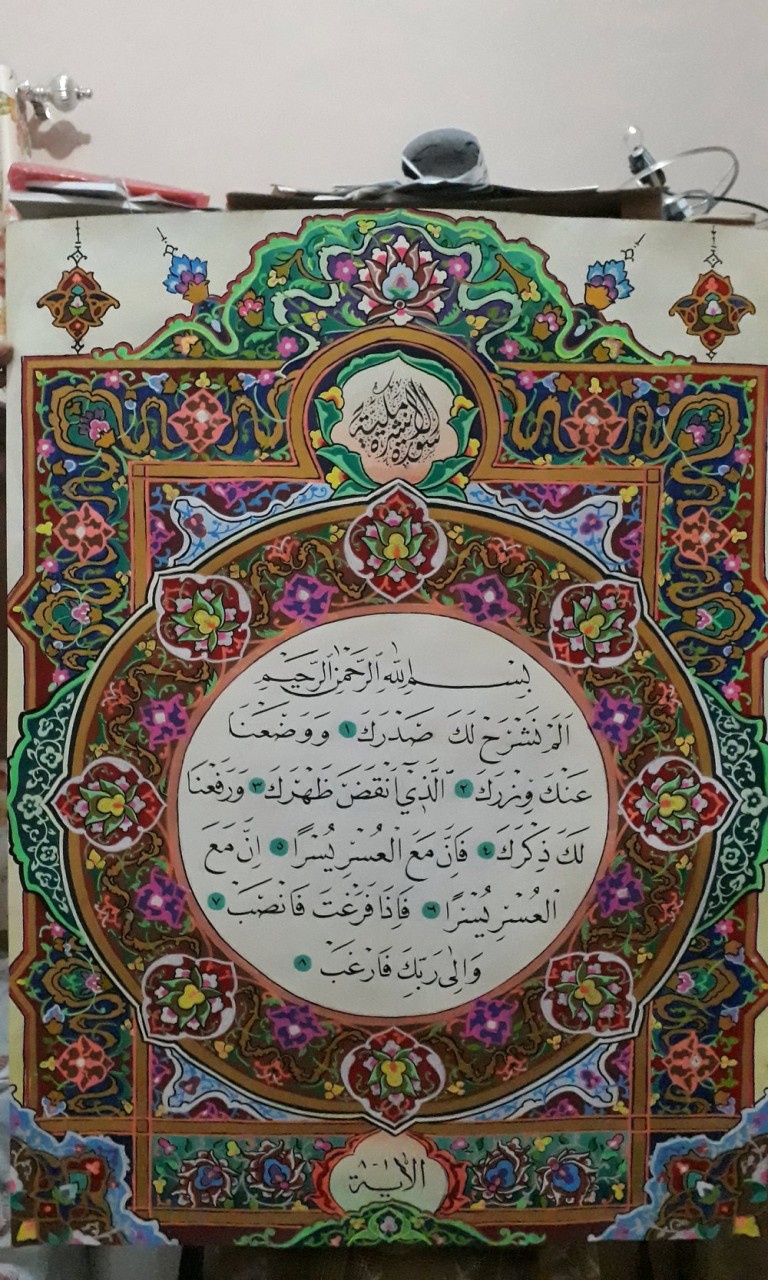 سورة الانشرح مكية
بِسْــــمِ اللهِ الرَّحْمٰنِ الرَّحِيْمِ
اَلَمْ نَشْرَحْ لَكَ صَدْرَكَ ١ وَوَضَعْنَا
عَنْكَ وِزْرَكَ ٢ الَّذِيْٓ اَنْقَضَ ظَهْرَكَ ٣ وَرَفَعْنَا
لَكَ ذِكْرَكَ ٤ فَاِنَّ مَعَ الْعُسْرِ يُسْرًا ٥ اِنَّ مَعَ
الْعُسْرِ يُسْرًا ٦ فَاِذَا فَرَغْتَ فَانْصَبْ ٧
وَاِلٰى رَبِّكَ فَارْغَبْ ٨
الآية ١-٨